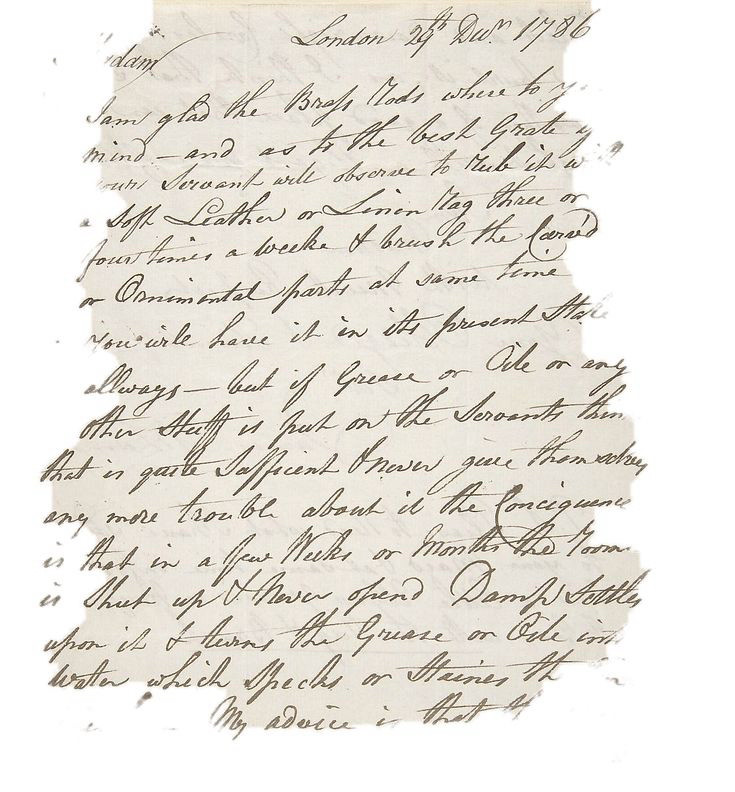 London 29th Decr 1786
I am glad the Brass Rods where to
mind — and as to the best Grate
Servant will observe to rub it
a Soft Leather or Linnin Rag three or
four times a weeke & brush the Carv'd
or Ornimental parts at same time
You will have it in its present State
allways — but if Grease or Oile or any
other Stuff is put on the Servants then
that is quite Safficient & never give themselves
any more trouble about it the Conciquence
is that in a few Weeks or Months the Room
is Shut up & Never opend Damp Settles
upon it & turns the Grease or Oile into
Water which Specks or Staines
My advice is that